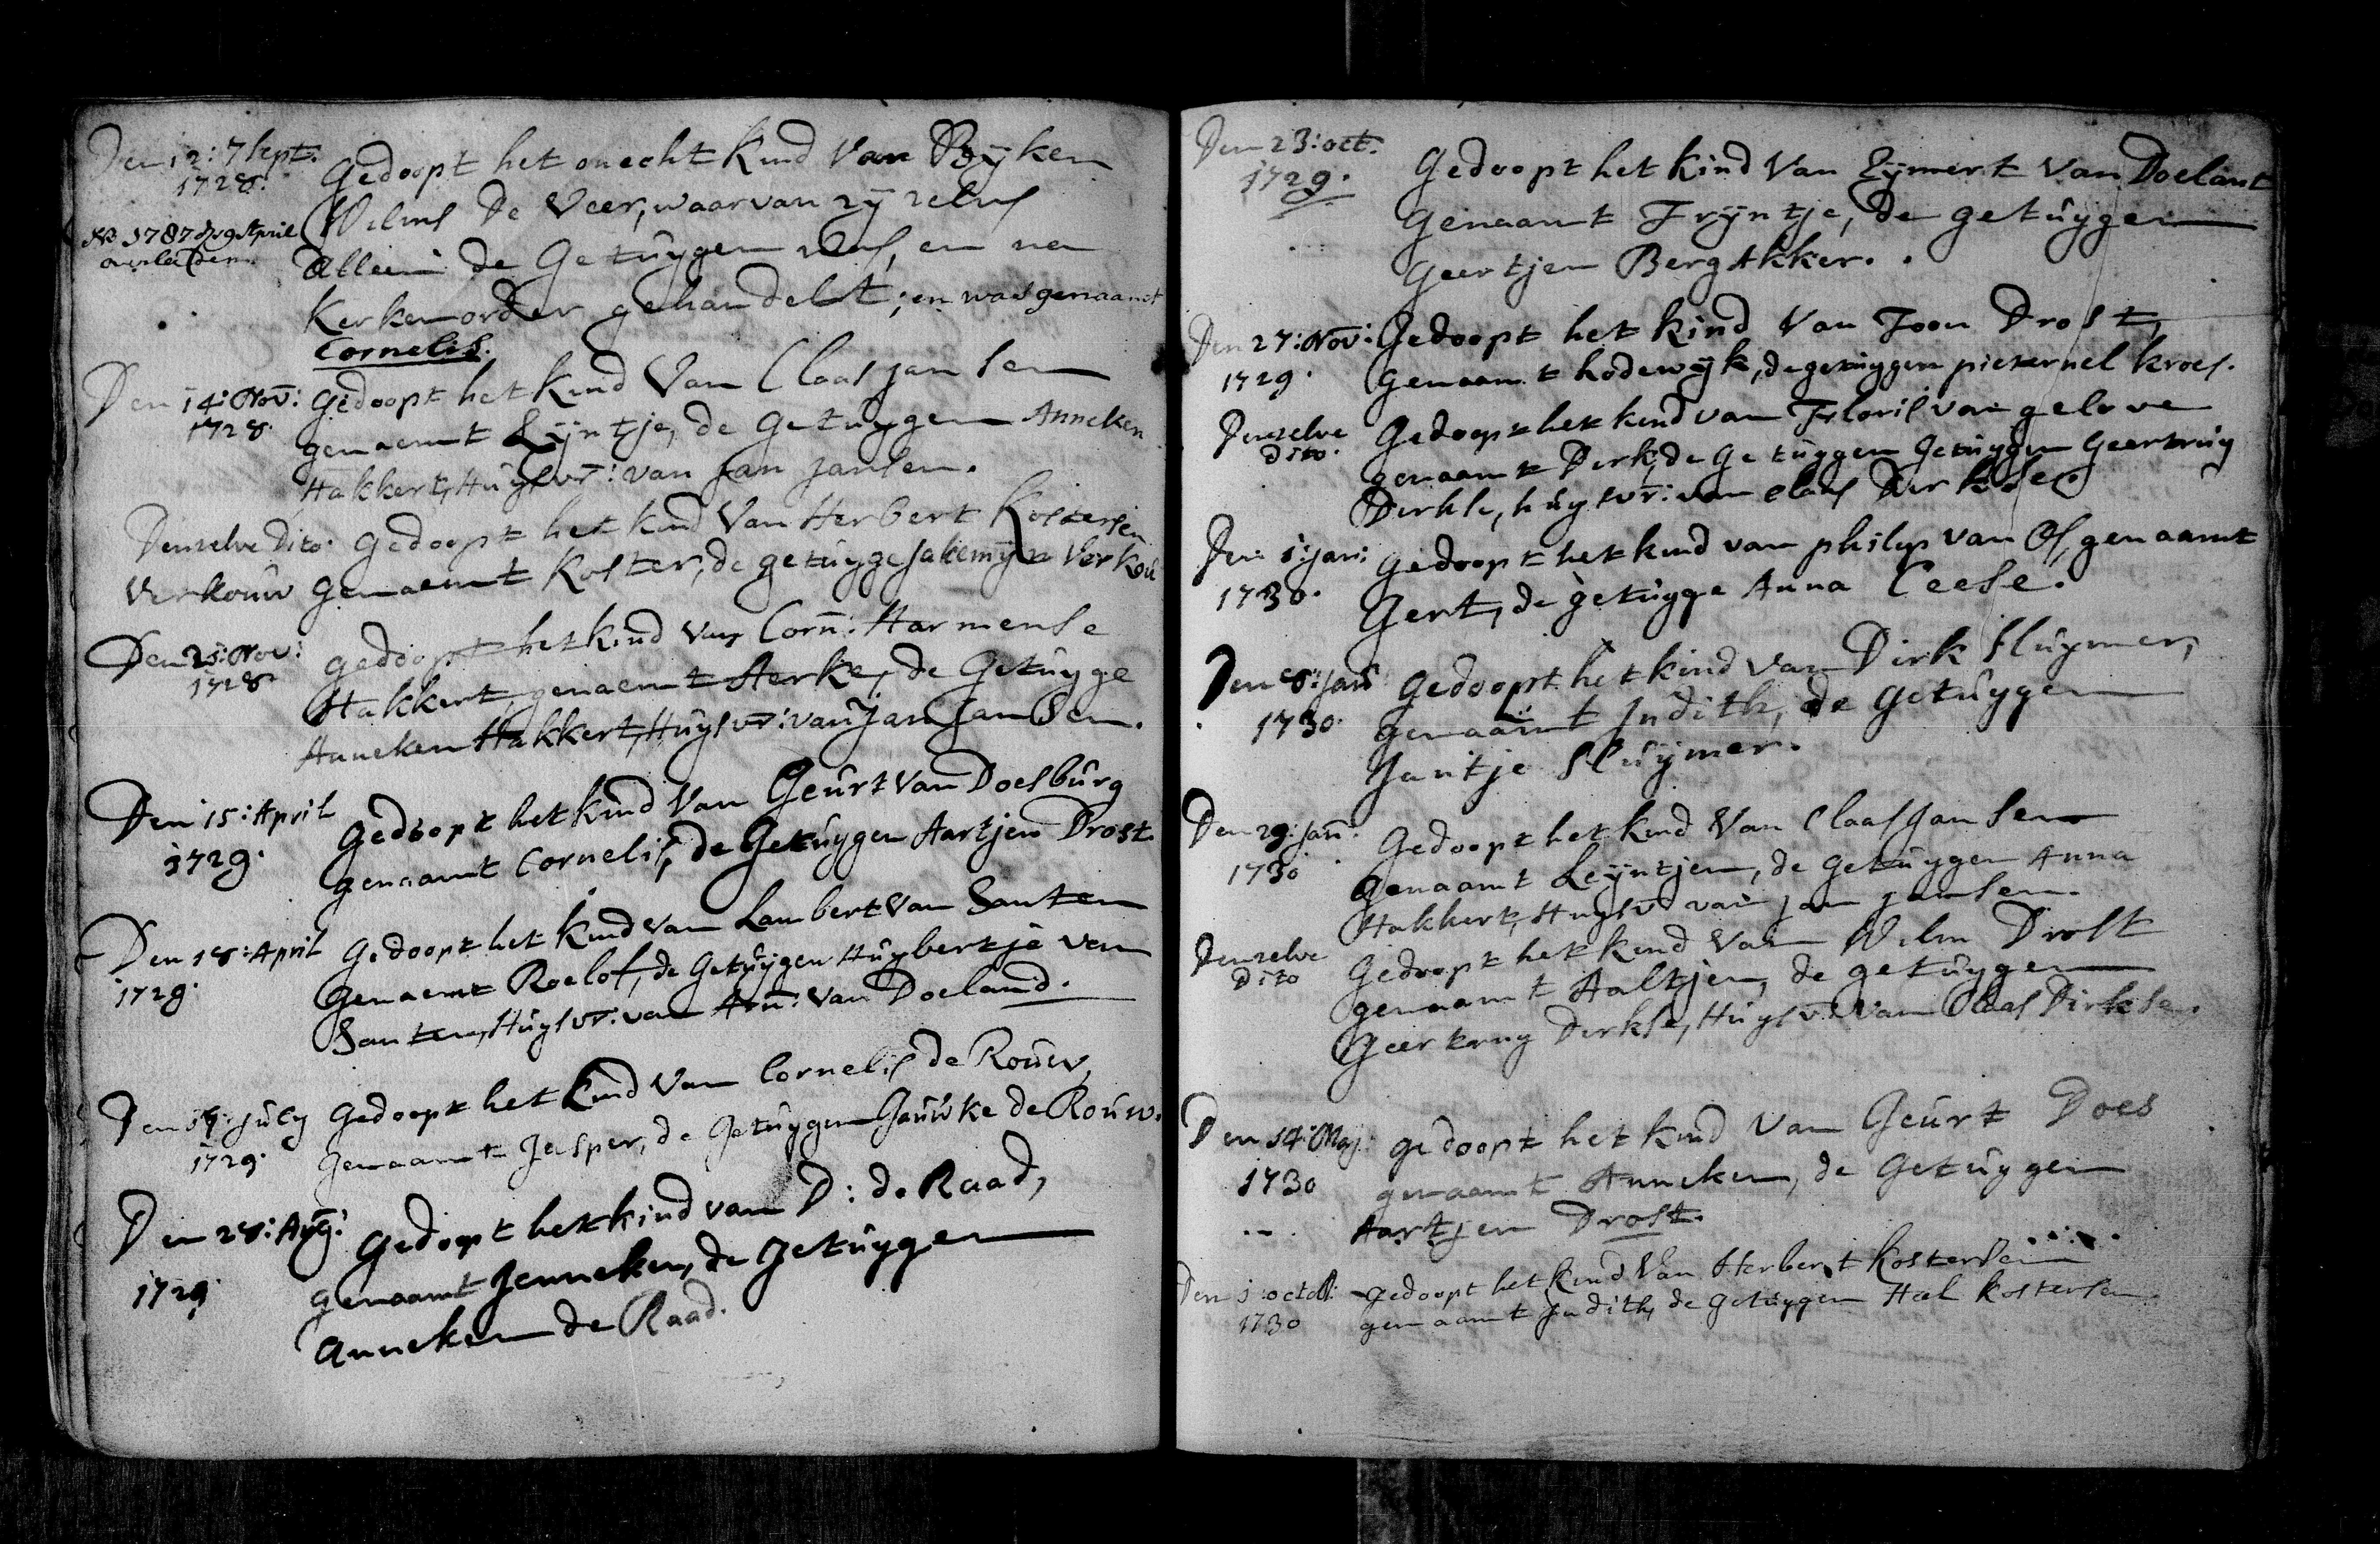 Den 12: 7 Sept.
1728.
Gedoopt het onecht kind van Rijken
Wilms de Veer, waarvan zij zelvs
alleen de Getuijgen was, en na
Kerkenorder gehandelt; en was genaamt
Cornelis.
NB 1787 d 9 April
overleden.
Den 14: Nov:
1728.
Gedoopt het kind Van Claas jansen
genaemt Lijntje, de Getuijgen Anneken
Hakkert, Huijsvr: van Jan jansen.
Denzelve dito. Gedoopt het kind Van Herbert Kostersen
Verkouw genaemt Koster, de getuijge Jakemijn Verkou
Den 25: Nov:
1728.
gedoopt het kind van Corn: Harmense
Hakkert, genaemt Herke, de Getuijge
Anneken Hakkert, Huijsvr: van Jan Jansen.
Den 15: April
1729.
Gedoopt het kind Van Geurt Van Doesburg
genaamt Cornelis, de Getuijgen Aartjen Drost.
Den 18: April
1729.
Gedoopt het kind van Lambert Van Santen
Genaemt Roelof, de Getuijgen Huijbertje van
Santen, Huijsvr: van Arn: Van Doeland.
Den july
1729.
Gedoopt het kind Van Cornelis de Rouw,
Genaamt Jesper, de Getuijgen Gouwke de Rouw.
Den 28: Aug:
1729
Gedoopt het kind van D: de Raad,
genaamt Jenneken, de Getuijgen
Anneken de Raad.
Den 23: oct.
1729.
Gedoopt het kind Van Eijmert Van Doelant
Genaamt Trijntje, de getuijgen
Geertjen Berg Akker.
Den 27: Nov:
1729.
Gedoopt het kind Van Toon Drost,
genaamt Lodewijk, de getuijgen pieternel kroes.
Denzelve
dito.
Gedoopt het kind van Floris van gelove
genaamt Derk, de Getuijgen Getuijgen Geertruij
Derkse, huijsvr: van Claas Derkse.
Den 1: jan:
1730.
Gedoopt het kind van philip van Os, genaamt
Gert, de getuijge Anna Ceese.
Den 8: Jan
1730.
Gedoopt het kind van Dirk Sluijmer,
genaamt Judith, de Getuijgen
Jantje Sluijmer.
Den 29: Jan:
1730
Gedoopt het kind Van Claas Jansen
Genaamt Leijntjen, de Getuijgen Anna
Hakkert, Huijsv van jan jansen.
Denzelve
dito
Gedoopt het kind van Wilm Drost
genaamt Aaltjen, de getuijgen
Geertruij Derkse, Huijsv: van Claas Dirkse.
Den 14: Maj:
1730
gedoopt het kind Van Geurt Does
genaamt Anneken, de Getuijgen
Aartjen Drost.
Den 1: octob:
1730
Gedoopt het kind Van Herbert Kostersen
genaamt Judith, de Getuijgen Hal Kostersen